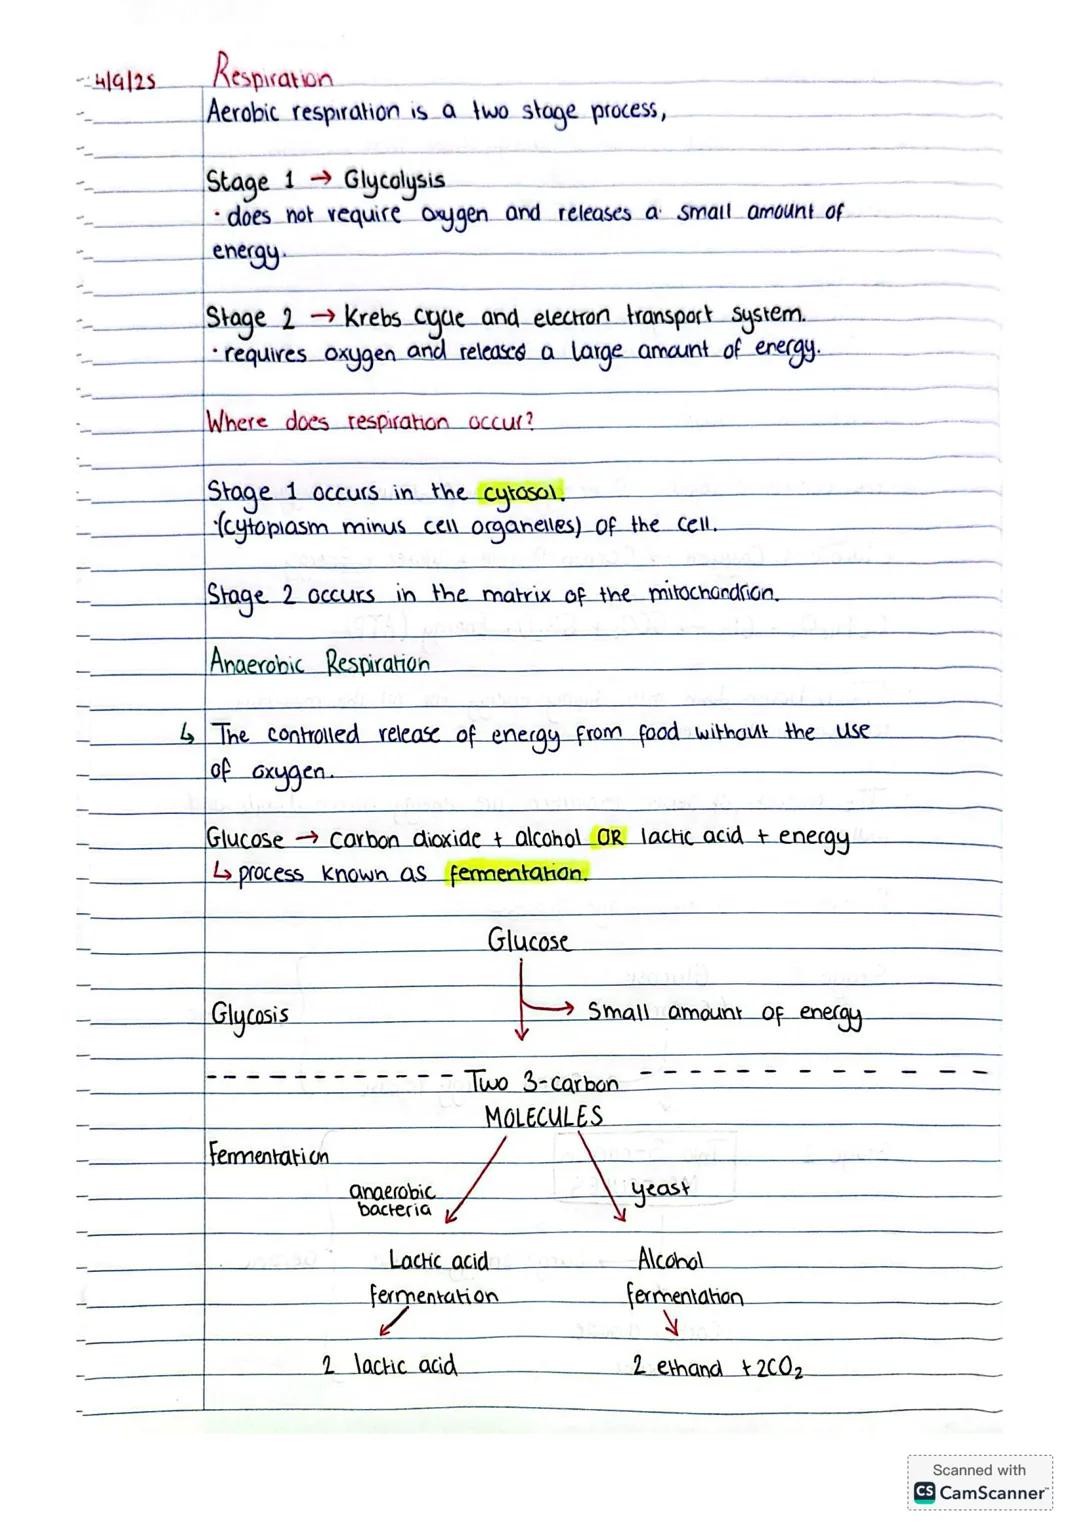 4/9/25 Respiration
Aerobic respiration is a two stage process,
Stage 1 → Glycolysis
· does not require oxygen and releases a small amount of
energy.
Stage 2 → Krebs cycle and electron transport system.
· requires oxygen and releases a large amount of energy.
Where does respiration occur?
Stage 1 occurs in the cytosol.
·(cytoplasm minus cell organelles) of the cell.
Stage 2 occurs in the matrix of the mitochondrion.
Anaerobic Respiration
↳ The controlled release of energy from food without the use
of oxygen.
Glucose → carbon dioxide + alcohol OR lactic acid + energy
↳ process known as fermentation.
Glucose
Glycosis → Small amount of energy
Two 3-carbon
MOLECULES
Fermentation
anaerobic
bacteria
yeast
Lactic acid
fermentation
Alcohol
fermentation
2 lactic acid
2 ethanol + 2CO₂
Scanned with
CS CamScanner